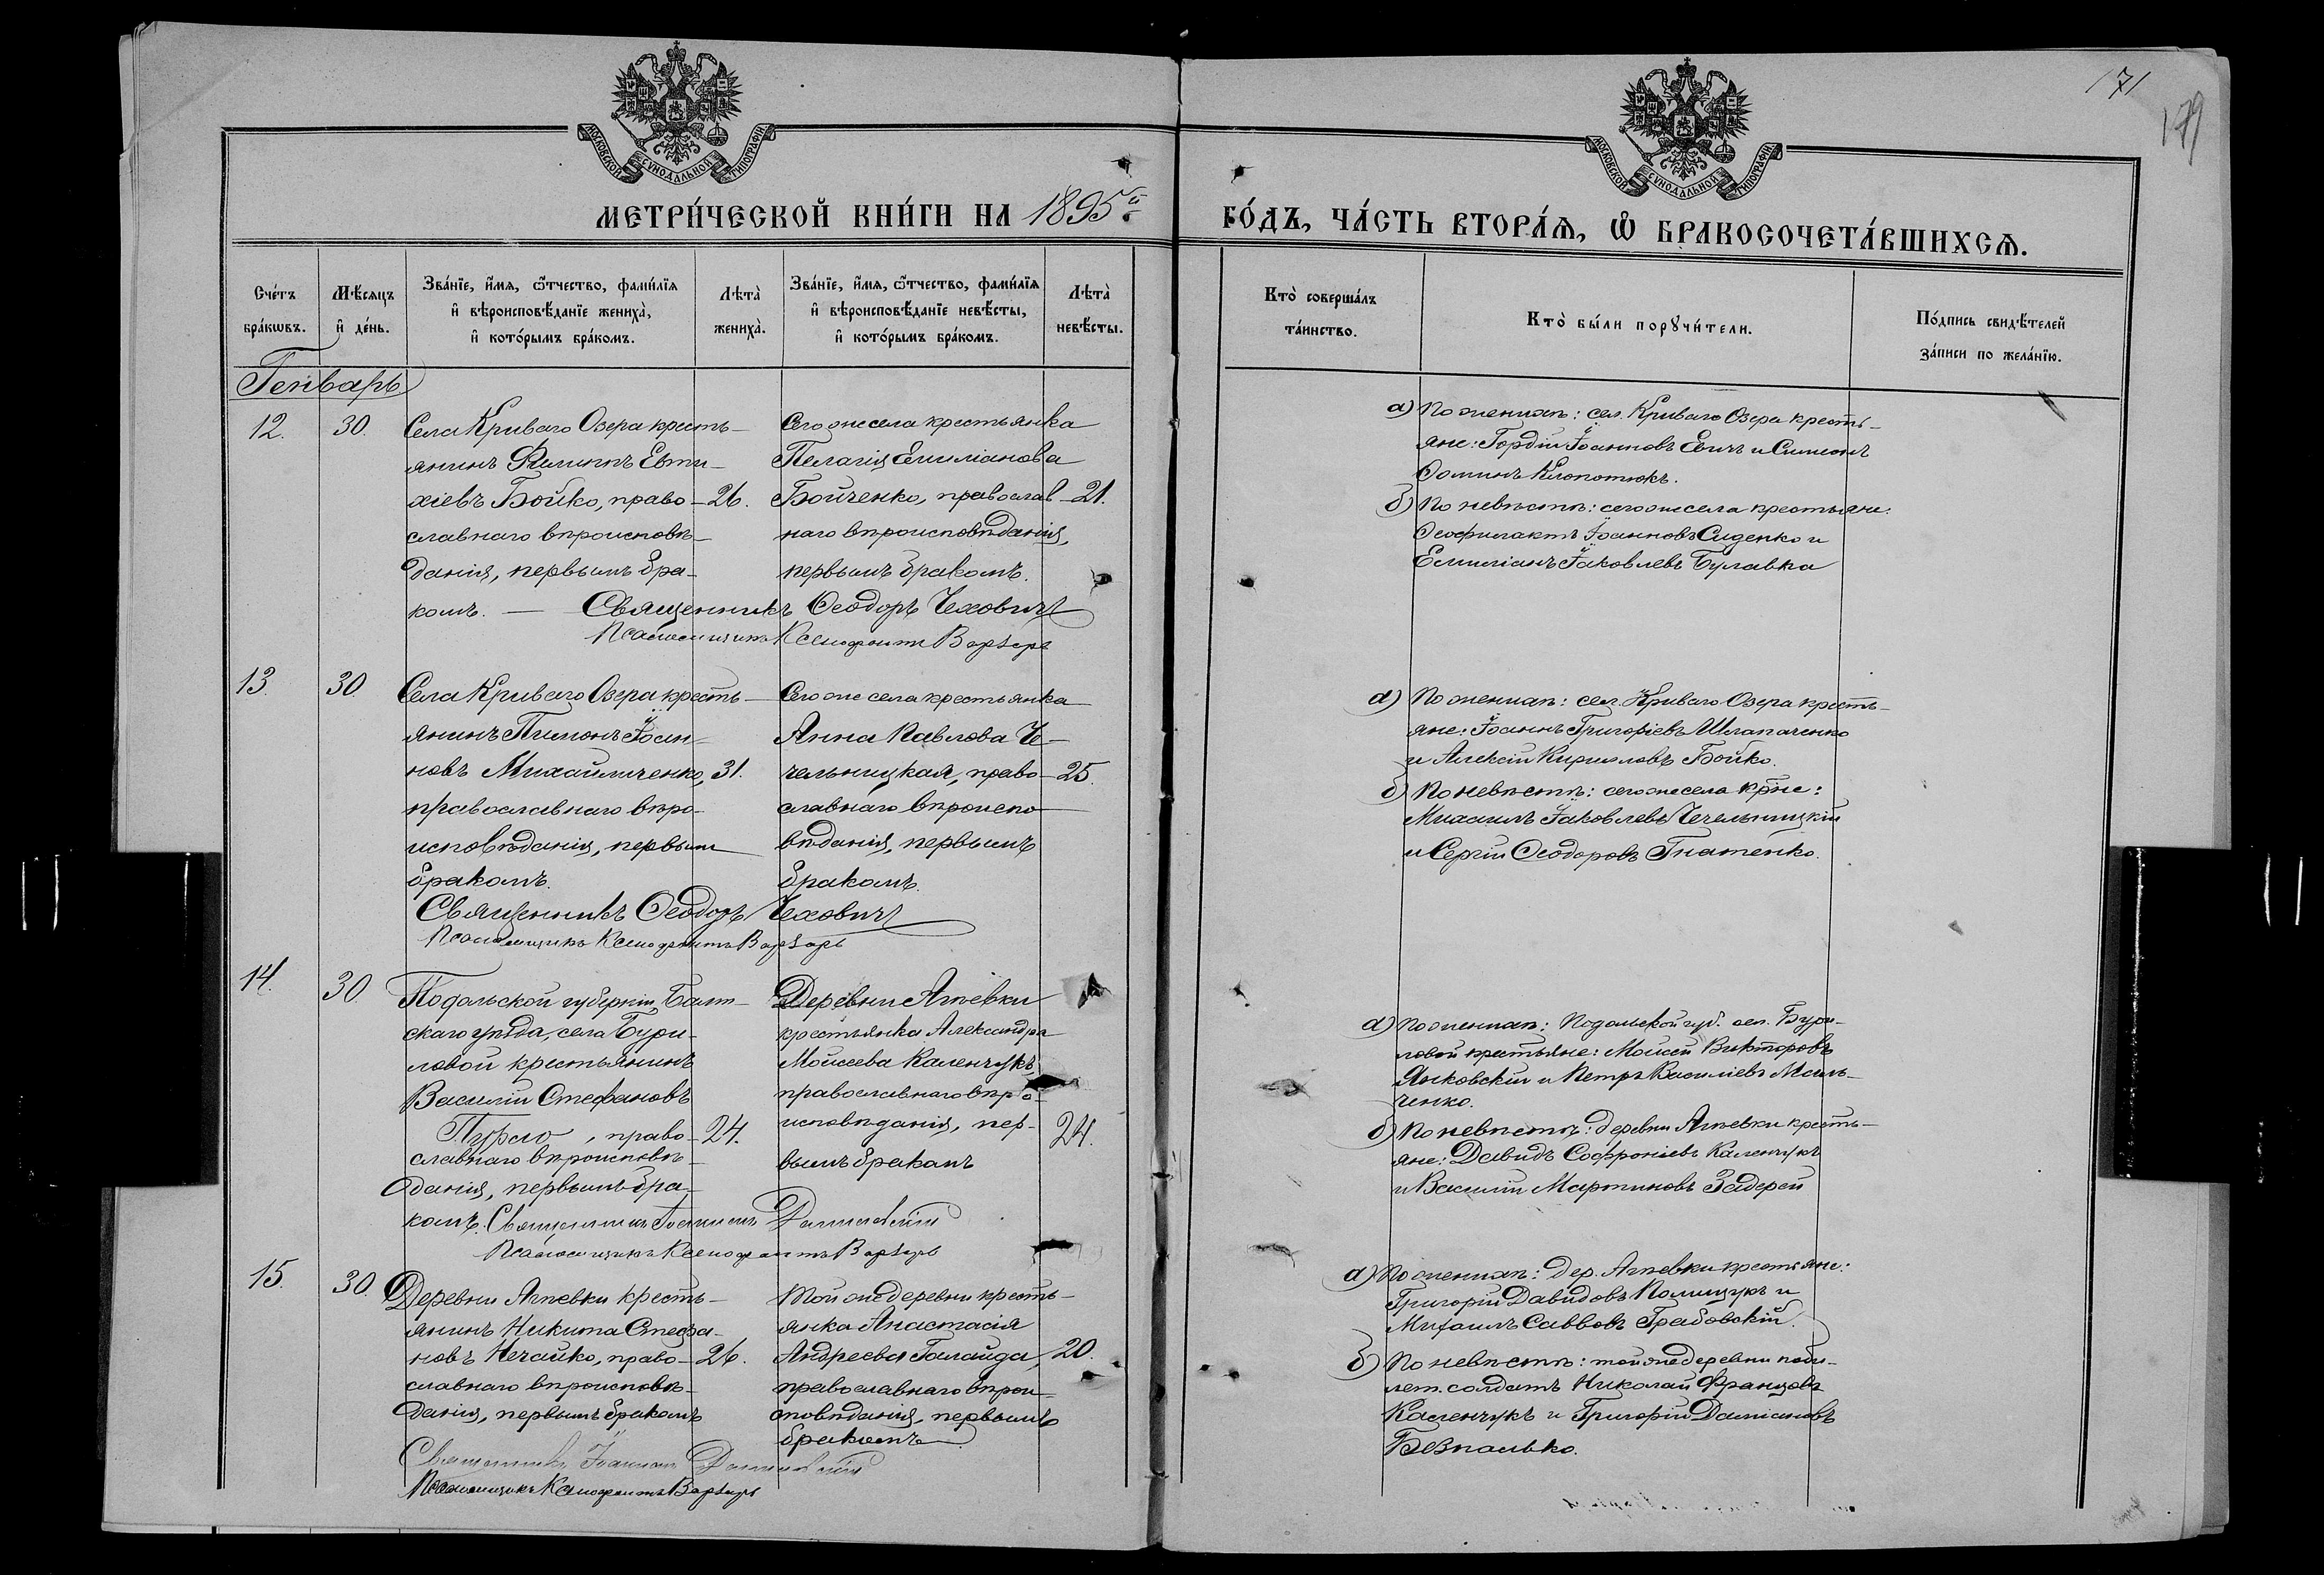 МОСКОВСКОЙ СУНОДАЛЬНОЙ ТИПОГРАФІИ
МОСКОВСКОЙ СУНОДАЛЬНОЙ ТИПОГРАФІИ
171
179
МЕТРИ́ЧЕСКОЙ КНИ́ГИ НА 1895й
ГО́ДЪ, ЧА́СТЬ ВТОРА́Я, Ѡ БРАКОСОЧЕТА́ВШИХСЯ.
Сче́тъ бра́кωвъ.
Мѣ́сяцъ и де́нь.
Зва́нїе, и́мя, ѻ́тчество, фами́лїя и вѣроисповѣ́данїе жениха̀, и кото́рымъ бра́комъ.
Лѣта̀ жениха̀.
Зва́нїе, и́мя, ѻ́тчество, фами́лїя и вѣроисповѣ́данїе невѣ́сты, и кото́рымъ бра́комъ.
Лѣта̀ невѣ́сты.
Кто̀ соверша́лъ та́инство.
Кто̀ бы́ли порꙋчи́тели.
По́дпись свидѣ́телей за́писи по жела́нїю.
Генварь
12.
30.
Села Криваго Озера кресть-
янинъ Филиппъ Евти-
хіевъ Бойко, право-
славнаго вѣроисповѣ-
данія, первымъ бра-
комъ.
26.
Сего же села крестьянка
Пелагія Емиліанова
Бойченко, православ-
наго вѣроисповѣданія,
первымъ бракомъ.
21.
Священникъ Ѳеодоръ Чеховичъ
Псаломщикъ Ксенофонтъ
а) По женихѣ: сел. Криваго Озера кресть-
яне: Гордій Іоанновъ и Симеонъ
Ѳоминъ Клопотюкъ.
б) По невѣстѣ: сего же села крестьяне:
Ѳеофилактъ Іоанновъ Сиденко и
Емиліанъ Іаковлевъ Булавка
13.
30.
Села Криваго Озера кресть-
янинъ Пименъ Іоан-
новъ Михайличенко,
православнаго вѣро-
исповѣданія, первымъ
бракомъ.
31.
Сего же села крестьянка
Анна Павлова Че-
чельницкая, право-
славнаго вѣроиспо-
вѣданія, первымъ
бракомъ.
25.
Священникъ Ѳеодоръ Чеховичъ
Псаломщикъ Ксенофонтъ
а) По женихѣ: сел. Криваго Озера кресть-
яне: Іоаннъ Григоріевъ Шлапаченко
и Алексій Кирилловъ Бойко.
б) По невѣстѣ: сего же села кр̃не:
Михаилъ Іаковлевъ Чечельницкій
и Сергій Ѳеодоровъ Гнатенко.
14.
30.
Подольской губерніи, Балт-
скаго уѣзда, села Бури-
ловой крестьянинъ
Василій Стефановъ
, право-
славнаго вѣроисповѣ-
данія, первымъ бра-
комъ.
24.
Деревни Агѣевки
крестьянка Александра
Моисеева Каленчукъ,
православнаго вѣро-
исповѣданія, пер-
вымъ бракомъ
24.
Священникъ Іоаннъ
Псаломщикъ Ксенофонтъ
а) По женихѣ: Подольской губ. сел. Бури-
ловой крестьяне: Моисей Викторовъ
Янковскій и Петръ Василіевъ Мель-
ченко.
б) По невѣстѣ: деревни Агѣевки кресть-
яне: Давидъ Софроніевъ Каленчукъ
и Василій Мартиновъ Задерей
15.
30.
Деревни Агѣевки кресть-
янинъ Никита Стефа-
новъ Нечайко, право-
славнаго вѣроисповѣ-
данія, первымъ бракомъ
26.
Той же деревни кресть-
янка Анастасія
Андреева Галайда,
православнаго вѣрои-
сповѣданія, первымъ
бракомъ
20.
Священникъ Іоаннъ
Псаломщикъ Ксенофонтъ
а) По женихѣ: дер. Агѣевки крестьяне:
Григорій Давидовъ Полищукъ и
Михаилъ Саввовъ Грабовскій.
б) По невѣстѣ: той же деревни
солдатъ Николай Францовъ
Каленчукъ и Григорій Даміановъ
Безпалько.